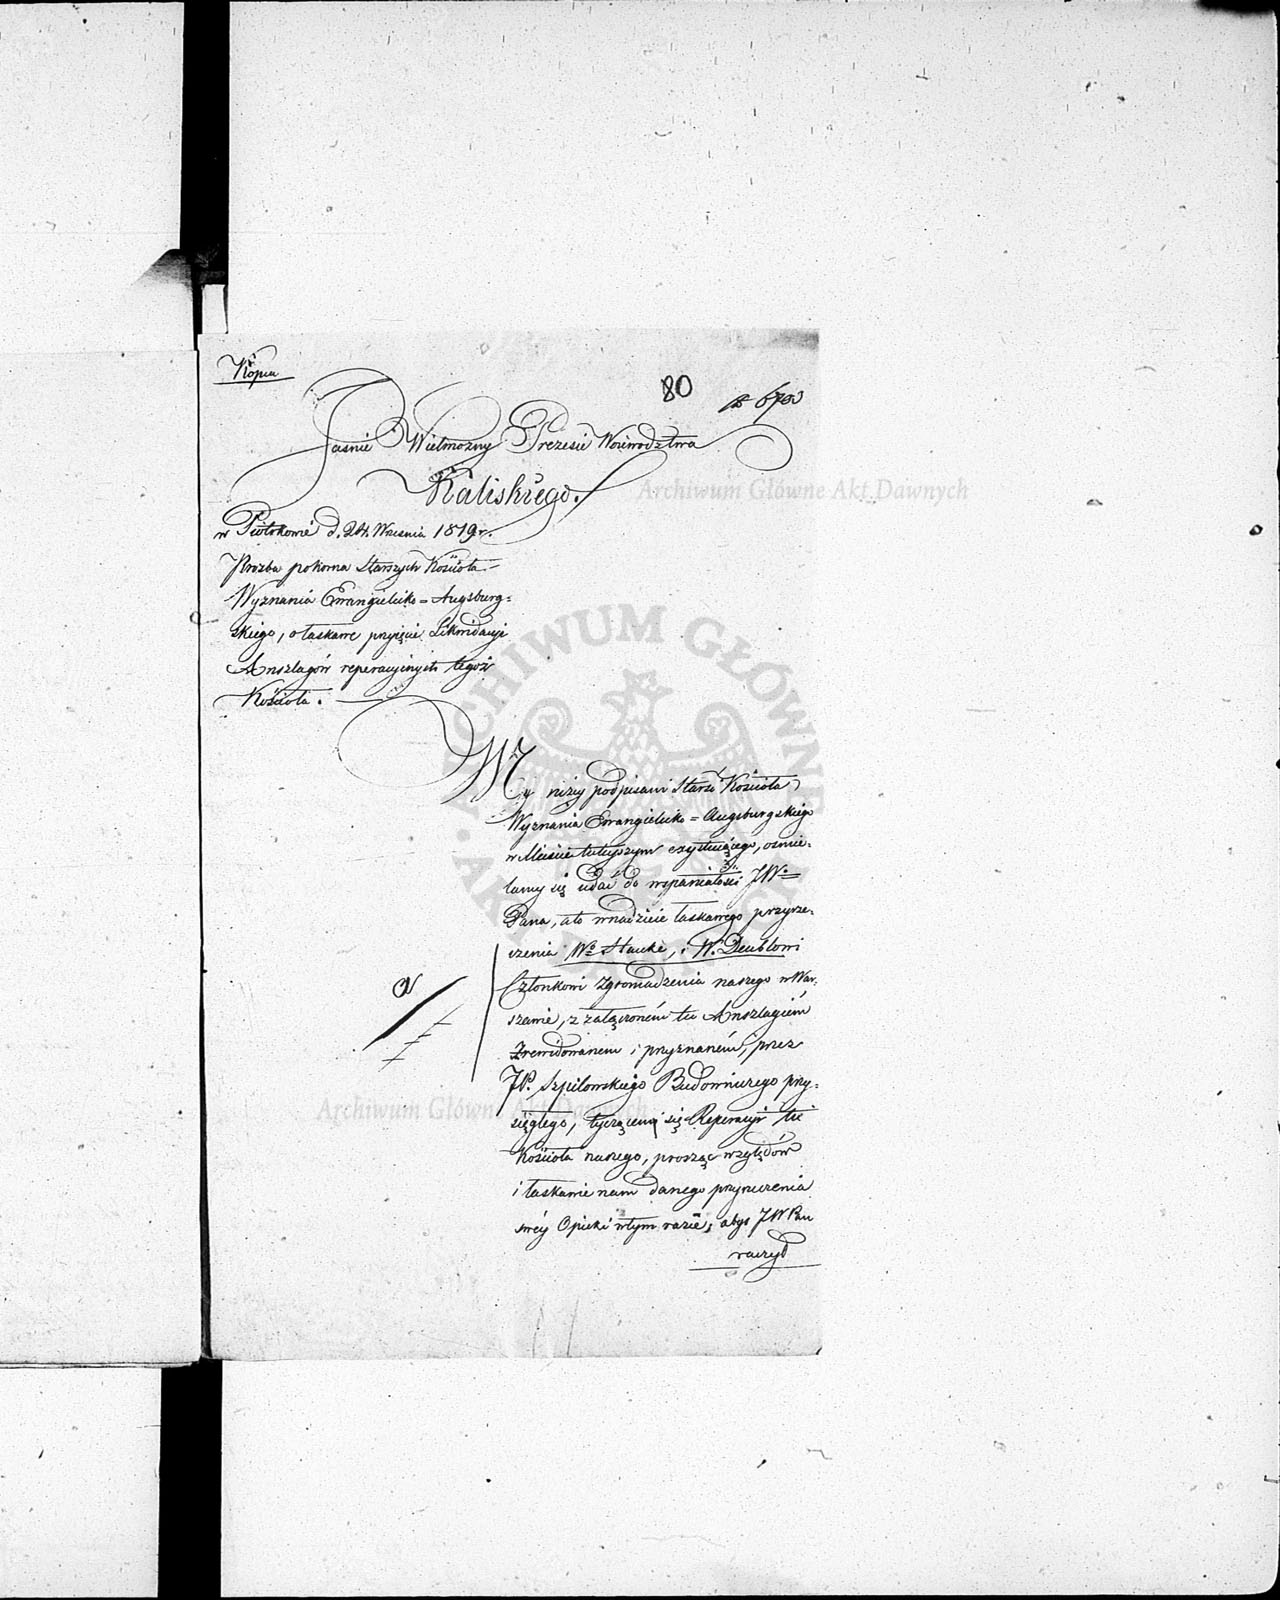 Kopia
80
6793
Jaśnie Wielmożny Prezesie Woiewodztwa
Kaliskiego.
w Piotrkowie d. 24. Wrześnią 1819 r.
Prozba pokorna Starszych Kościoła
Wyznania Ewangielicko = Augsburg=
skiego, o łaskawe przyięcie Likwidacyi
Anszlagów reperacyinych tegoż
Kościoła.
My niżey podpisani Starsi Kościoła
Wyznania Ewangielicko = Augsburgskiego
w Mieście tuteyszym exystuiącego, ośmie=
lamy się udać do wspaniałości JWo
Pana, a to w nadzieie łaskawego przyrze=
czenia Wo Hauke, i W. Deublowi
Członkowi Zgromadzenia naszego w War=
szawie, z załączoném tu Anszlagiém
Zrewidowanem i przyznaném, przez
JP. Szpilowskiego Budowniczego przy=
sięgłego, tyczącemi się Reperacyi tu
Kościoła naszego, prosząc względów
i łaskawie nam danego przyrzeczenia
swéy Opieki w tym razie; abyś JW Pan
raczył
Archiwum Główne Akt Dawnych
Archiwum Główne Akt Dawnych
ARCHIWUM GŁÓWNE AKT DAWNYCH